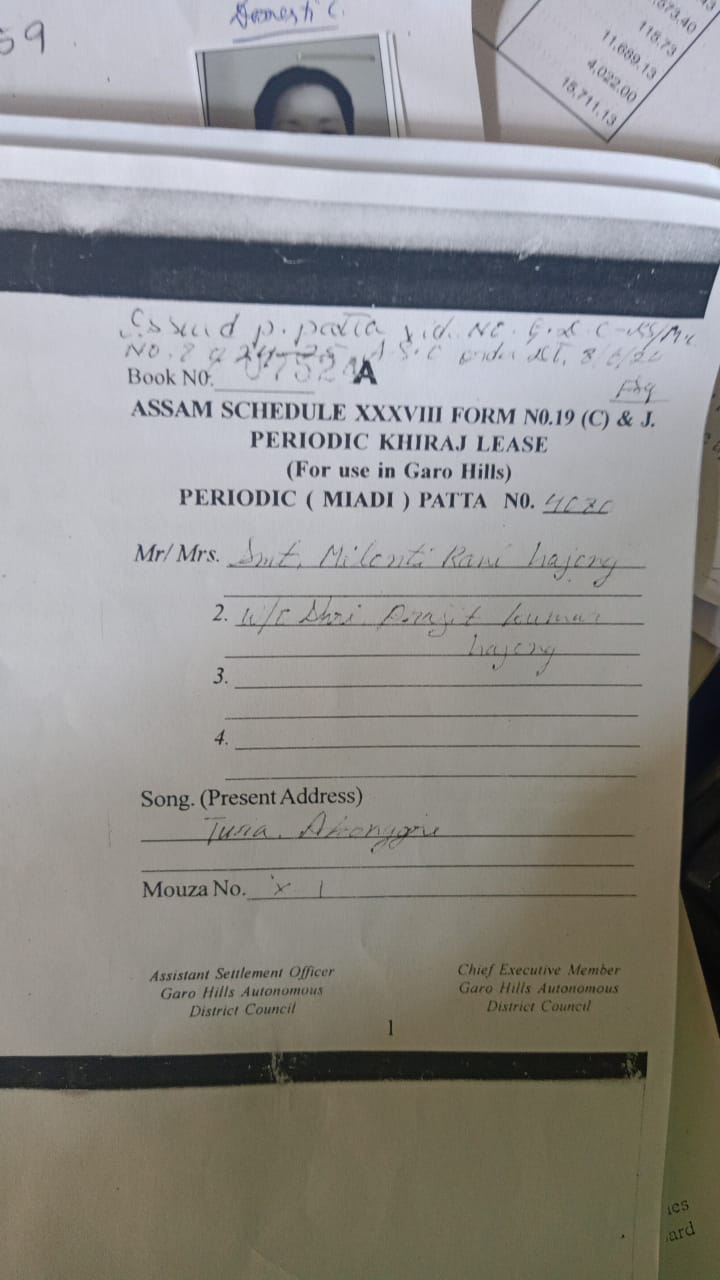 59
Domestic
673.40
118.73
11,689.13
4,022.00
15,711.13
Issued p. patta vid. No.
NO. 8 of 24-25 A.S.O order dt.
Book N0. A
ASSAM SCHEDULE XXXVIII FORM N0.19 (C) & J.
PERIODIC KHIRAJ LEASE
(For use in Garo Hills)
PERIODIC ( MIADI ) PATTA N0.
Mr/ Mrs. Smt. Milonti Rani hajong
2. W/o Shri Prajit kumar
hajong
3.
4.
Song. (Present Address)
Tura.
Mouza No. x 1
Assistant Settlement Officer
Garo Hills Autonomous
District Council
Chief Executive Member
Garo Hills Autonomous
District Council
1
ies
ard